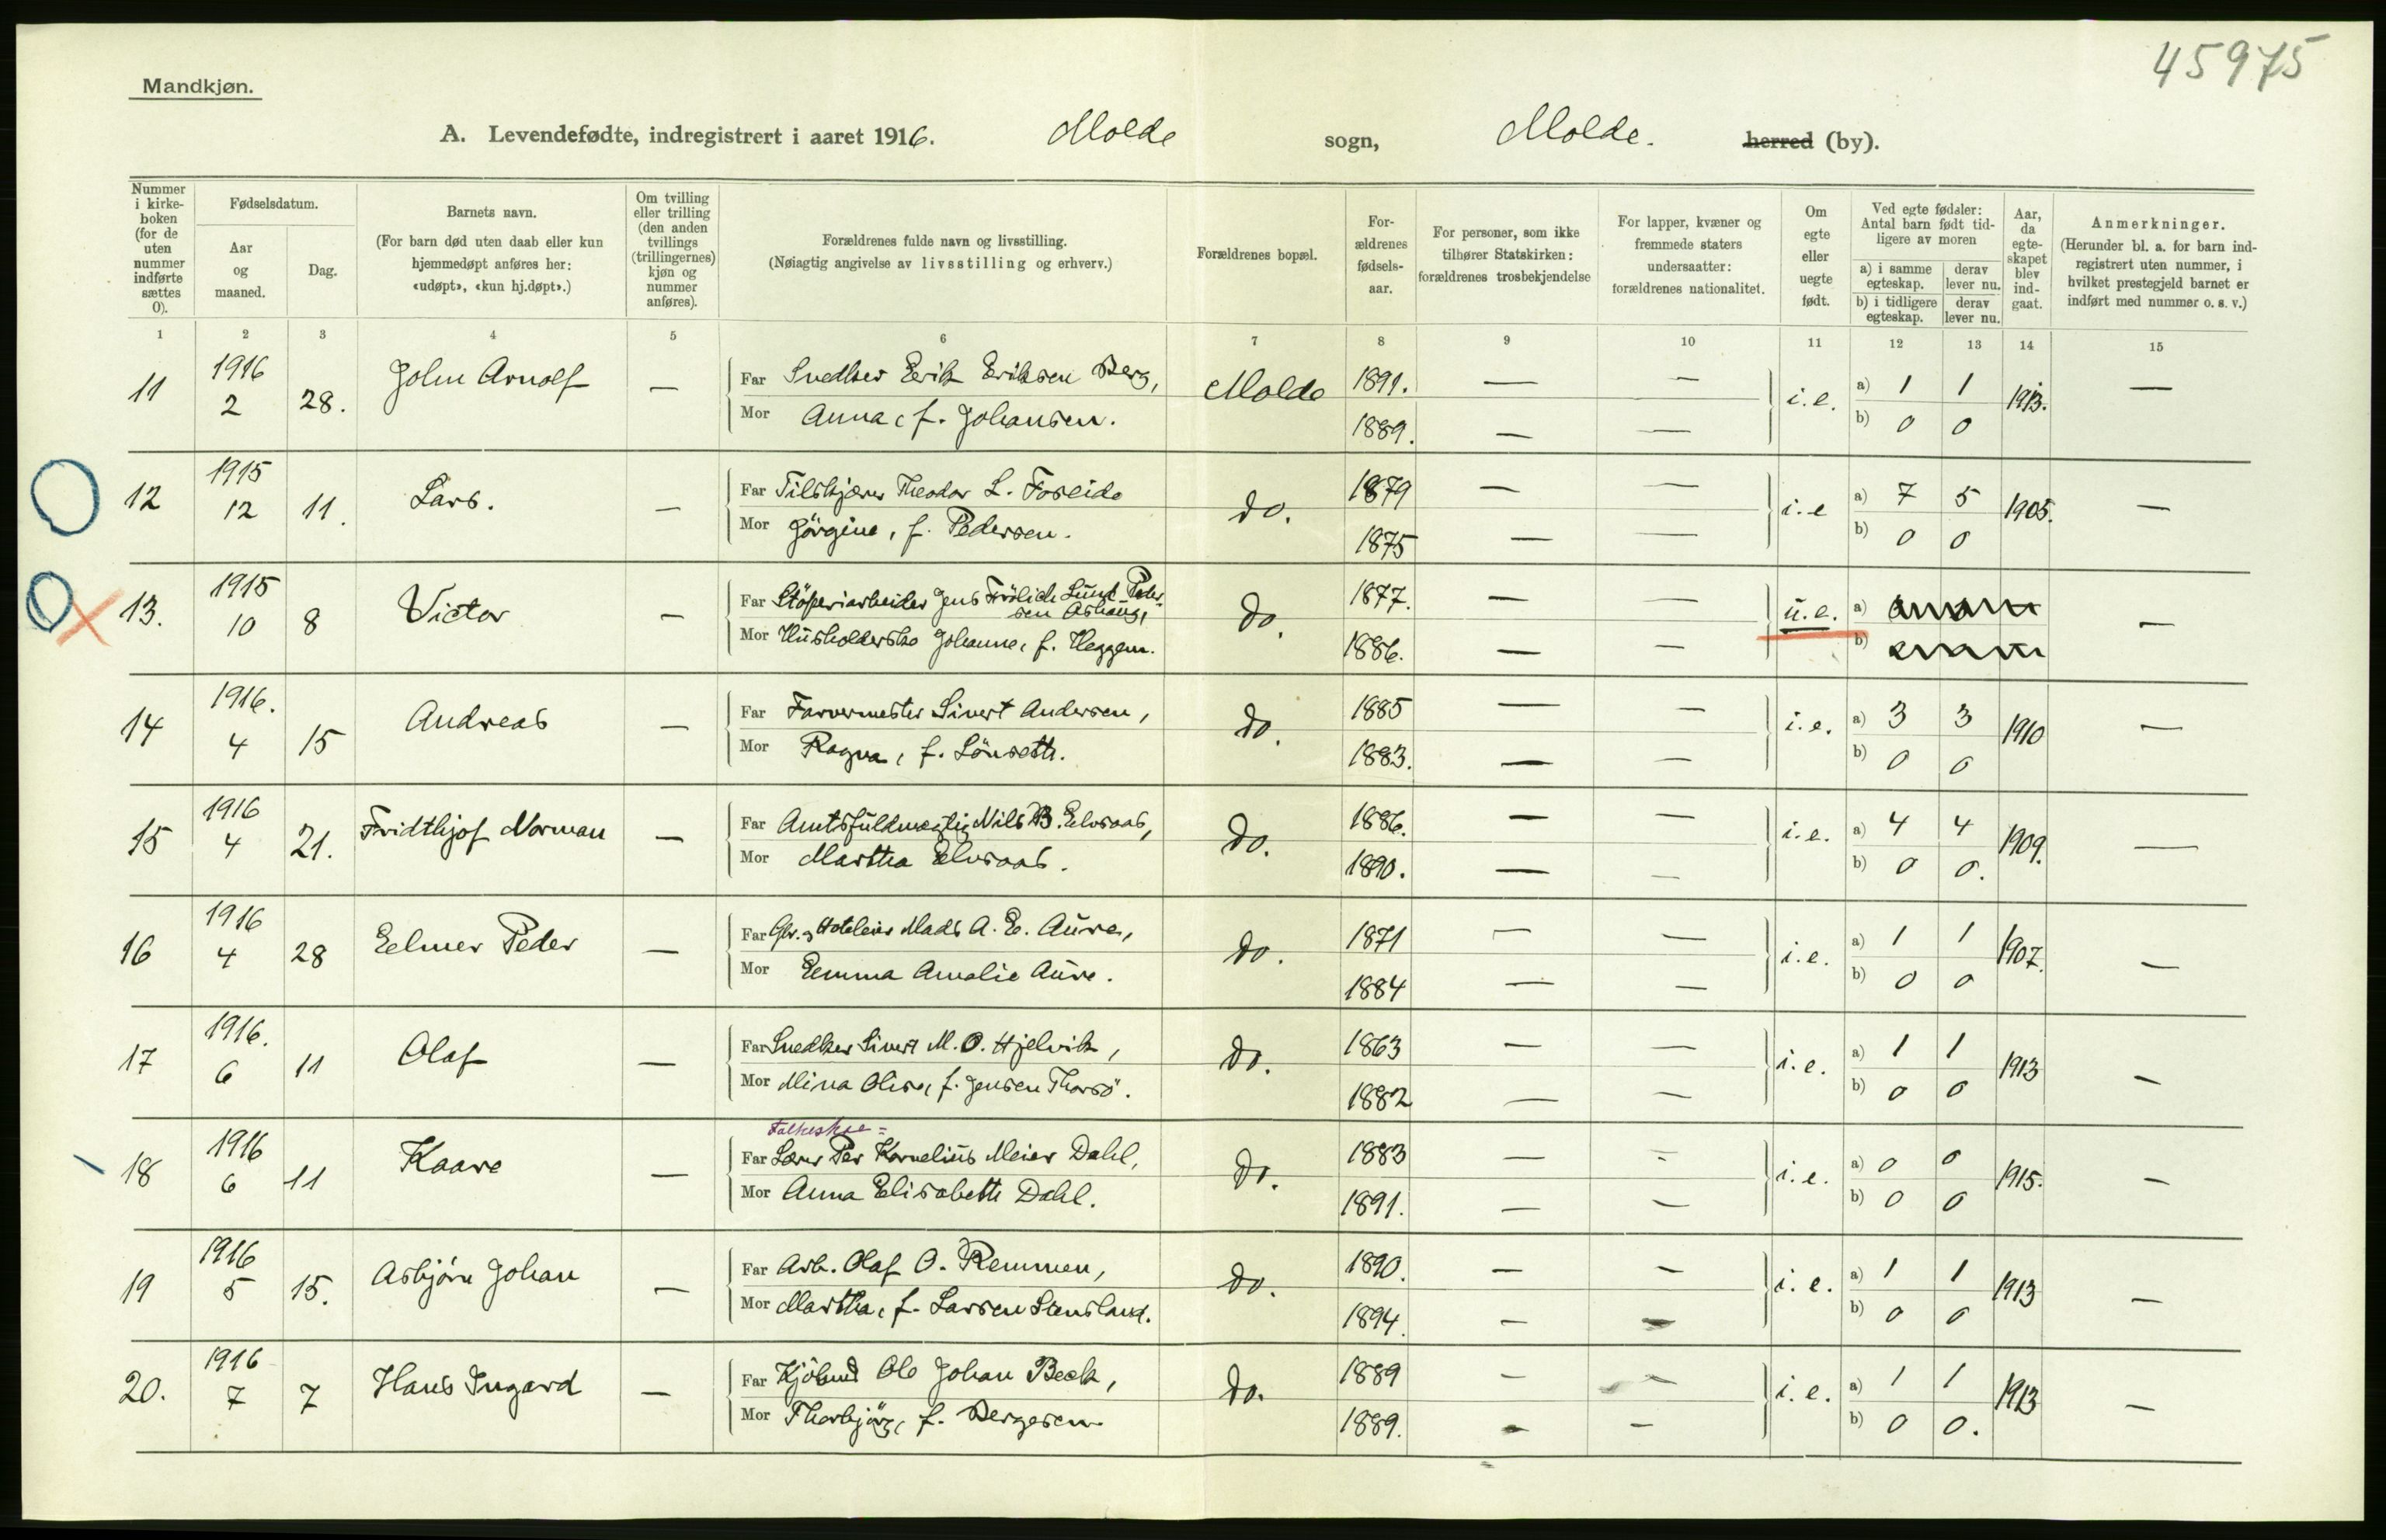 45975
Mandkjøn.
A. Levendefødte, indregistrert i aaret 1916. Molde sogn, Molde. herred (by).
Nummer i kirke-boken (for de uten nummer indførte sættes 0).
Fødselsdatum.
Aar og maaned.
Dag.
Barnets navn.
(For barn død uten daab eller kun hjemmedøpt anføres her: «udøpt», «kun hj.døpt».)
Om tvilling eller trilling (den anden tvillings (trillingernes) kjøn og nummer anføres).
Forældrenes fulde navn og livsstilling.
(Nøiagtig angivelse av livsstilling og erhverv.)
Forældrenes bopæl.
For-ældrenes fødsels-aar.
For personer, som ikke tilhører Statskirken: forældrenes trosbekjendelse
For lapper, kvæner og fremmede staters undersaatter: forældrenes nationalitet.
Om egte eller uegte født.
Ved egte fødsler: Antal barn født tid-ligere av moren
a) i samme egteskap. derav lever nu.
b) i tidligere egteskap. derav lever nu.
Aar, da egte-skapet blev ind-gaat.
Anmerkninger.
(Herunder bl. a. for barn ind-registrert uten nummer, i hvilket prestegjeld barnet er indført med nummer o. s. v.)
1 2 3 4 5 6 7 8 9 10 11 12 13 14 15
11 1916 2 28. John Arnolf — Far Snedker Erik Eriksen Berg, Molde 1891. — — i.e. a) 1 1 1913. —
Mor Anna, f. Johansen. 1889. — — b) 0 0
12 1915 12 11. Lars. — Far Tilskjærer Theodor L. Foseide do. 1879 — — i.e a) 7 5 1905. —
Mor Jörgine, f. Pedersen. 1875 — — b) 0 0
13. 1915 10 8 Victor — Far Stöperiarbeider Jens Frölich Lund Peder-
sen Ashaug, do. 1877. — — u.e. a) —
Mor Husholderske Johanne, f. Heggem. 1886. — — b)
14 1916. 4 15 Andreas — Far Farvermester Sivert Andersen, do. 1885 — — i.e. a) 3 3 1910 —
Mor Ragna, f. Lönseth. 1883. — — b) 0 0
15 1916 4 21. Fridthjof Norman — Far Amtsfuldmægtig Nils B. Elvsaas, do. 1886. — — i.e. a) 4 4 1909. —
Mor Martha Elvsaas. 1890. — — b) 0 0.
16 1916 4 28 Elmer Peder — Far Gbr. og Hoteleier Mads A. E. Aure, do. 1871 — — i.e. a) 1 1 1907. —
Mor Emma Amalie Aure. 1884 — — b) 0 0
17 1916. 6 11 Olaf — Far Snedker Sivert M. O. Hjelvik, do. 1863 — — i.e. a) 1 1 1913 —
Mor Mina Oline, f. Jensen Thorsö. 1882 — — b) 0 0
Folkeskole=
18 1916 6 11 Kaare — Far Lærer Per Kornelius Meier Dahl, do. 1883 — — i.e. a) 0 0 1915. —
Mor Anna Elisabeth Dahl. 1891. — — b) 0 0
19 1916 5 15. Asbjörn Johan — Far Arb. Olaf O. Remmen, do. 1890. — — i.e. a) 1 1 1913 —
Mor Martha, f. Larsen Stensland. 1894. — — b) 0 0
20. 1916 7 7 Hans Ingard — Far Kjöbmd Ole Johan Beck, do. 1889 — — i.e. a) 1 1 1913 —
Mor Thorbjörg, f. Bergesen. 1889. — — b) 0 0.